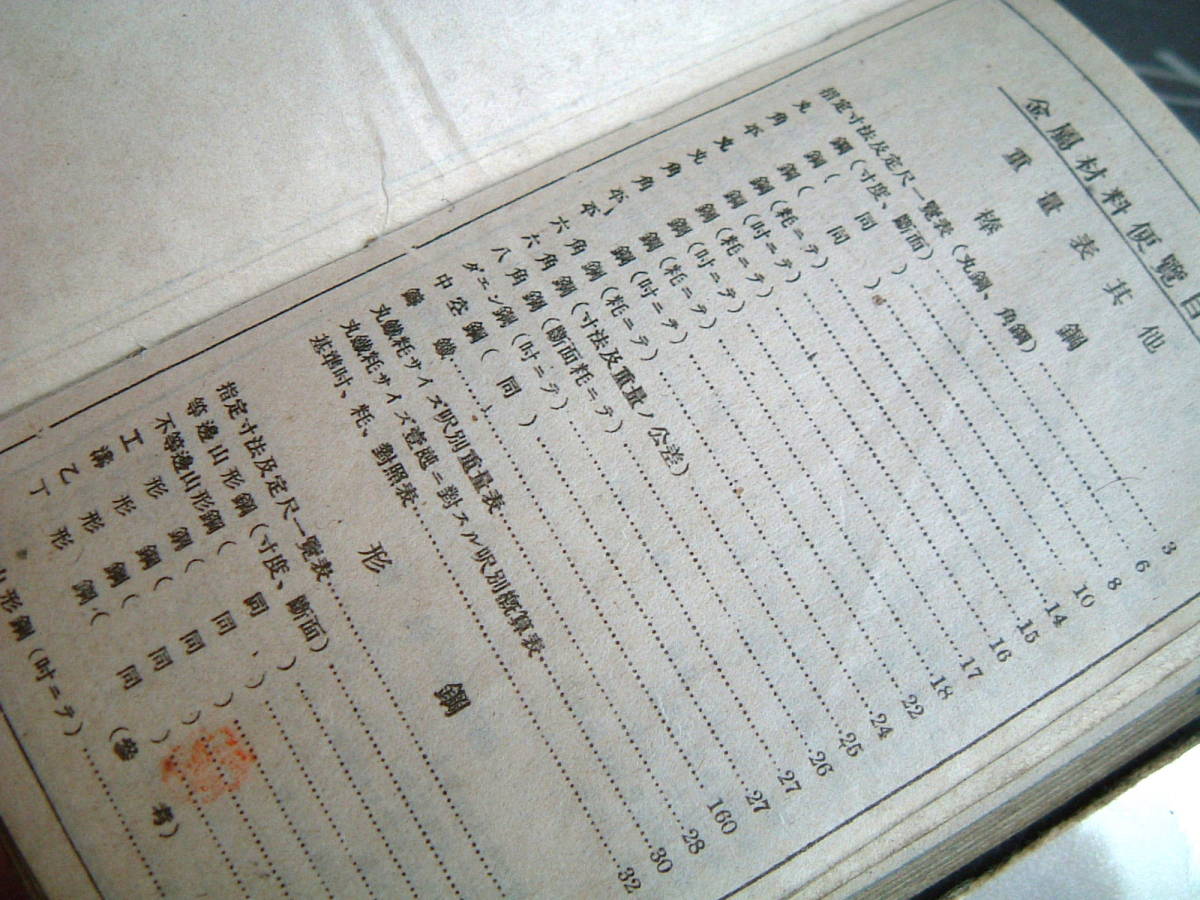 金屬材料便覽目
重量表其他
棒鋼
指定寸法及定尺一覽表(丸鋼、角鋼)……3
丸鋼(寸度、斷面)……6
角鋼(同)……8
平鋼(同)……10
丸鋼(粍ニテ)……14
丸鋼(吋ニテ)……15
角鋼(粍ニテ)……16
角鋼(吋ニテ)……17
平鋼(粍ニテ)……18
平鋼(吋ニテ)……22
六角鋼(粍ニテ)……24
六角鋼(寸法及重量ノ公差)……25
八角鋼(斷面粍ニテ)……26
ダエン鋼(吋ニテ)……27
中空鋼(同)……27
鐵……160
丸鐵粍サイズ呎別重量表……28
丸鐵粍サイズ壹 ニ對スル呎別概算表……30
基準吋、粍、對照表……32
形鋼
指定寸法及定尺一覽表……
等邊山形鋼(寸度、斷面)……
不等邊山形鋼(同)……
工形鋼(同)……
溝形鋼(同)……
乙形鋼(同)……
丁形鋼(參考)……
山形鋼(吋ニテ)……